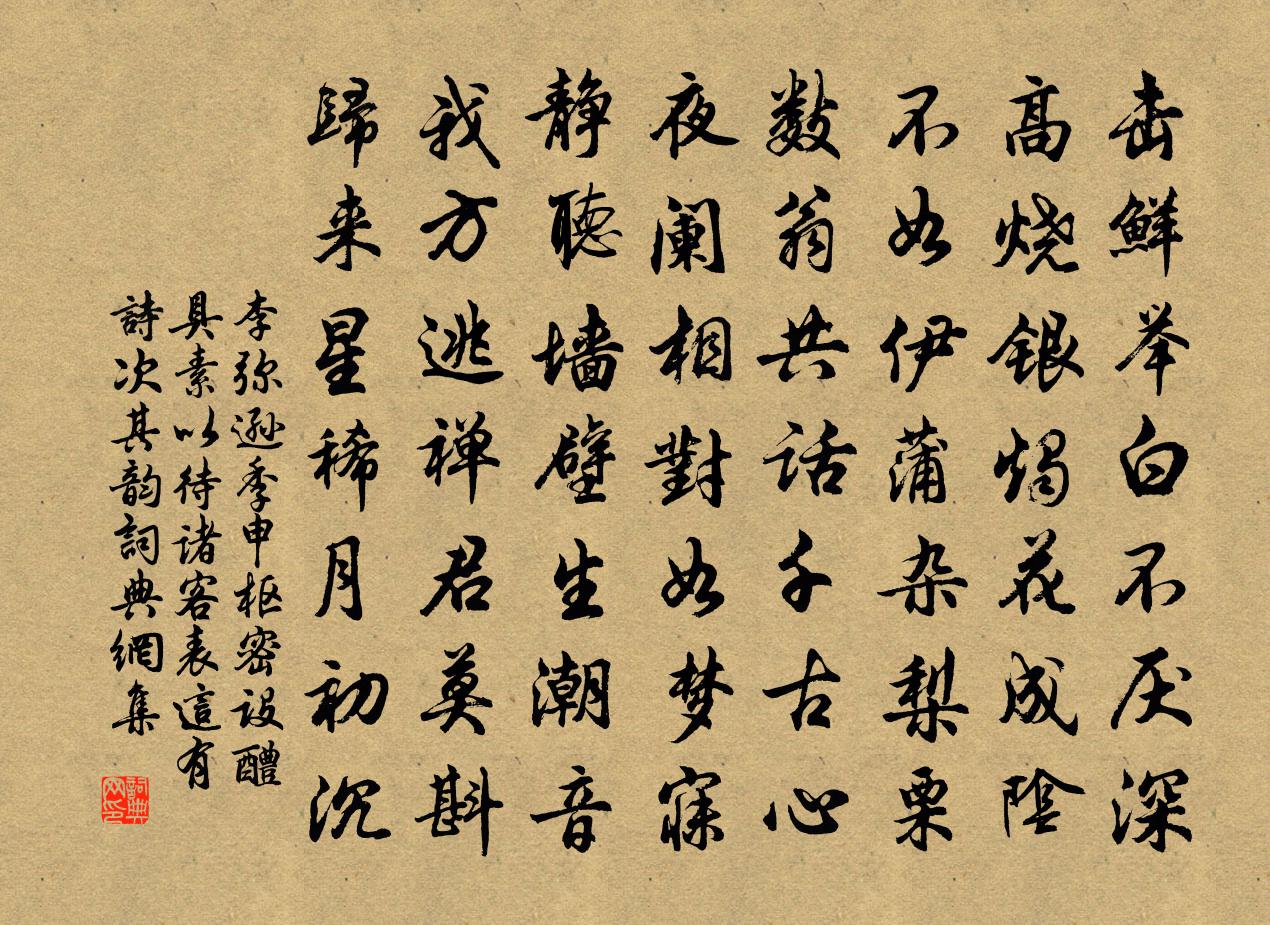 击鲜举白不厌深
高烧银烛花成阴
不如伊蒲杂梨栗
数翁共话千古心
夜阑相對如梦寐
静聽墙壁生潮音
我方逃禅君莫斟
歸来星稀月初沉
李弥逊季申枢密设醴
具素以待诸客表這有
詩次其韵詞典網集
詞典网印